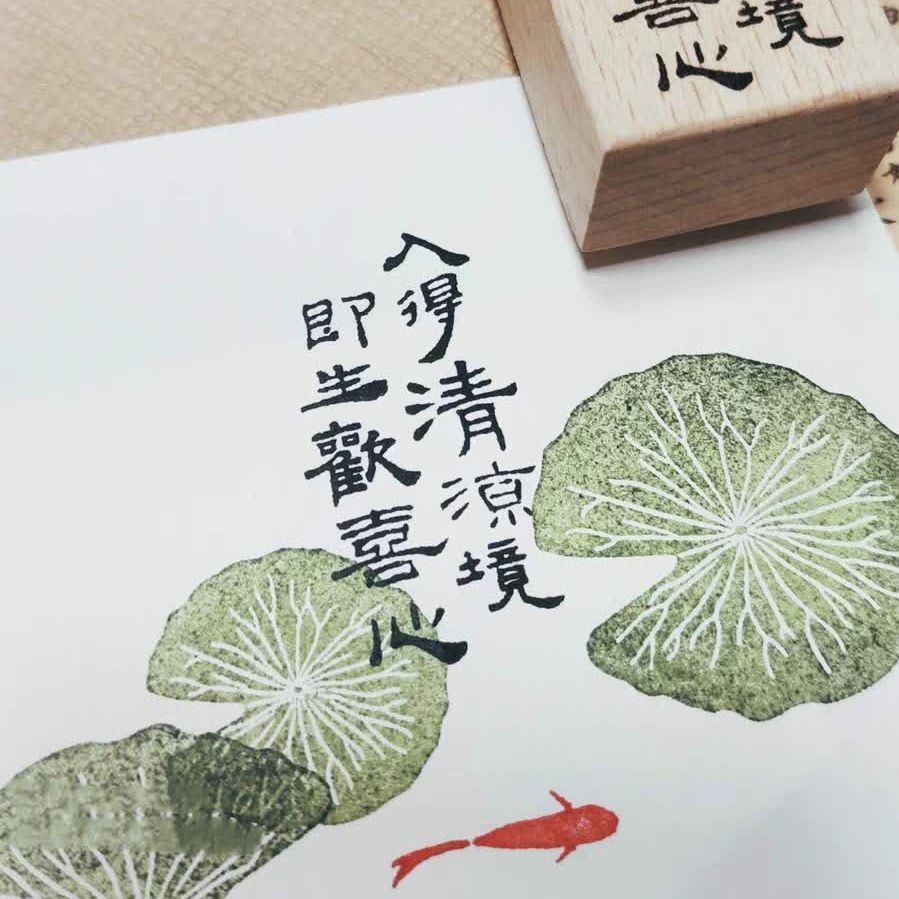 入得清涼境
即生歡喜心
境
喜心